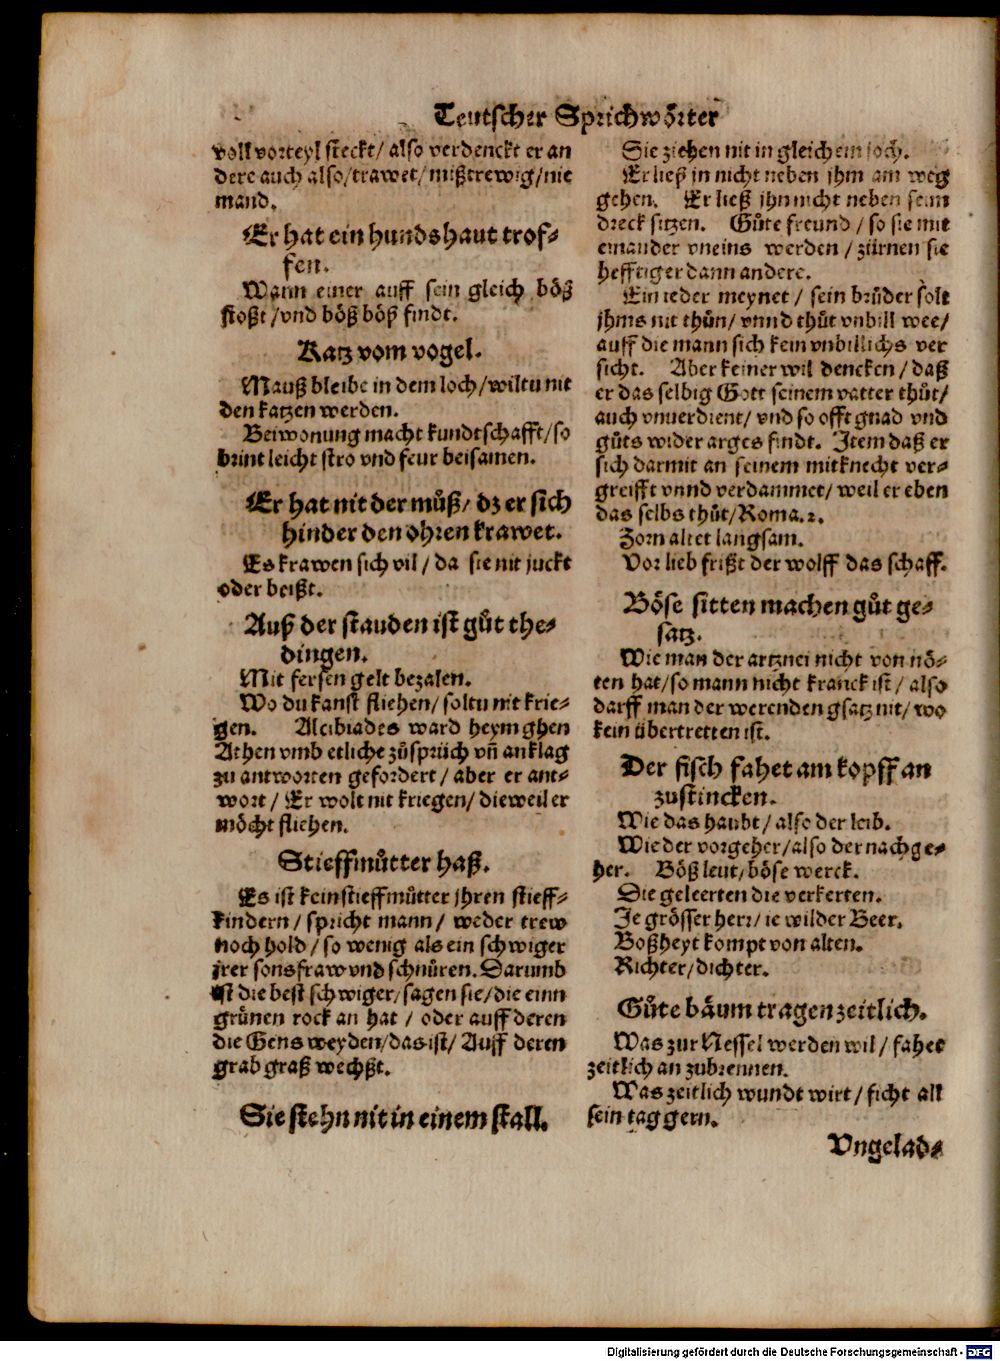 Teutscher Sprichwörter
voll vorteyl steckt/ also verdenckt er an
dere auch also/trawet/mißtrewig/nie
mand.
Er hat ein hundshaut trof⸗
fen.
Wann einer auff sein gleich böß
stoßt/vnd böß böß findt.
Katz vom vogel.
Mauß bleibe in dem loch/wiltu nit
den katzen werden.
Beiwonung macht kundtschafft/so
brint leicht stro vnd feur beisamen.
Er hat nit der můß/ dz er sich
hinder den ohren krawet.
Es krawen sich vil/da sie nit juckt
oder beißt.
Auß der stauden ist gůt the⸗
dingen.
Mit fersen gelt bezalen.
Wo du kanst fliehen/soltu nit krie⸗
gen. Alcibiades ward heym ghen
Athen vmb etliche zůsprüch vñ anklag
zu antworten gefordert/aber er ant⸗
wort/Er wolt nit kriegen/dieweil er
möcht fliehen.
Stieffmůtter haß.
Es ist kein stieffmůtter jhren stieff⸗
kindern/spricht mann/ weder trew
noch hold/so wenig als ein schwiger
jrer sonsfraw vnd schnüren. Darumb
ist die best schwiger/sagen sie/die einn
grünen rock an hat/ oder auff deren
die Gens weyden/das ist/ Auff deren
grab graß wechßt.
Sie stehn nit in einem stall.
Sie ziehen nit in gleichem joch.
Er ließ jn nicht neben jhm am weg
gehen. Er ließ jhn nicht neben seim
dreck sitzen. Gůte freund/so sie mit
einander vneins werden/zürnen sie
hefftiger dann andere.
Ein ieder meynet/ sein brůder solt
jhms nit thůn/vnnd thůt vnbill wee/
auff die mann sich kein vnbillichs ver
sicht. Aber keiner wil dencken/daß
er das selbig Gott seinem vatter thůt/
auch vnuerdient/vnd so offt gnad vnd
gůts wider arges findt. Item daß er
sich darmit an seinem mitknecht ver⸗
greifft vnnd verdammet/weil er eben
das selbs thůt/Roma.2.
Zorn altet langsam.
Vor lieb frißt der wolff das schaff.
Böse sitten machen gůt ge⸗
satz.
Wie man der artznei nicht von nö⸗
ten hat/so mann nicht kranck ist/also
darff man der werenden gsatz nit/wo
kein übertretten ist.
Der fisch fahet am kopff an
zustincken.
Wie das haubt/also der leib.
Wie der vorgeher/also der nachge⸗
her. Böß leut/böse werck.
Die geleerten die verkerten.
Je grösser herr/ie wilder Beer.
Boßheyt kompt von alten.
Richter/dichter.
Gůte bäum tragen zeitlich.
Was zur Nessel werden wil/fahet
zeitlich an zubrennen.
Was zeitlich wundt wirt/ficht all
sein tag gern.
Vngelad⸗
Digitalisierung gefördert durch die Deutsche Forschungsgemeinschaft - DFG